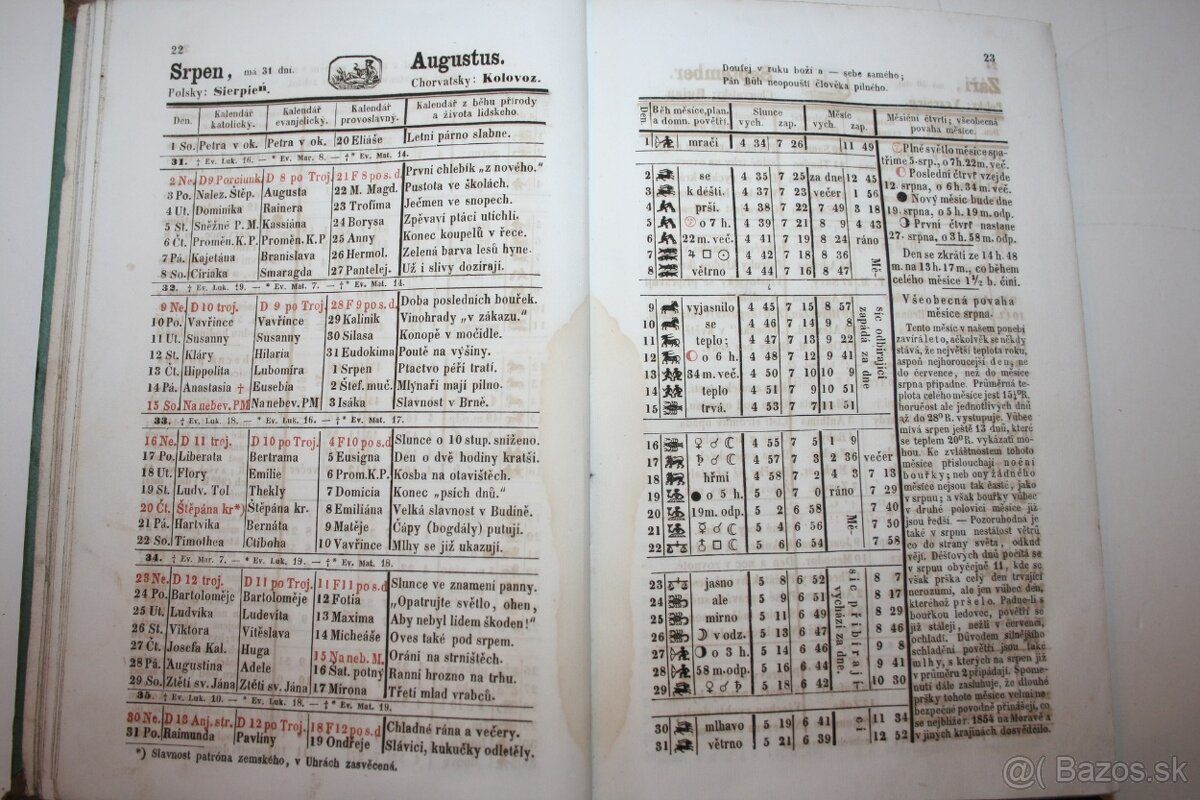 22
Srpen, má 31 dní.
Augustus.
Polsky: Sierpień.
Chorvatsky: Kolovoz.
Den.
Kalendář katolický.
Kalendář evanjelický.
Kalendář pravoslavný.
Kalendář z běhu přírody a života lidského.
1 So. Petra v ok. Petra v ok. 20 Eliáše Letní párno slabne.
31. † Ev. Luk. 16. — * Ev. Mar. 8. — †* Ev. Mat. 14.
2 Ne. D 9 Porciunk. D 8 po Troj. 21 F 8 po s. d. První chlebík „z nového.“
3 Po. Nalez. Štěp. Augusta 22 M. Magd. Pustota ve školách.
4 Ut. Dominika Rainera 23 Trofima Ječmen ve snopech.
5 St. Sněžné P. M. Kassiána 24 Borysa Zpěvaví ptáci utichli.
6 Čt. Proměn. K. P. Proměn. K. P 25 Anny Konec koupelů v řece.
7 Pá. Kajetána Branislava 26 Hermol. Zelená barva lesů hyne.
8 So. Ciriaka Smaragda 27 Pantelej. Už i slivy dozírají.
32. † Ev. Luk. 19. — * Ev. Mat. 7. — †* Ev. Mat. 14.
9 Ne. D 10 troj. D 9 po Troj. 28 F 9 po s. d. Doba posledních bouřek.
10 Po. Vavřince Vavřince 29 Kalinik Vinohrady „v zákazu.“
11 Ut. Susanny Susanny 30 Silasa Konopě v močidle.
12 St. Kláry Hilaria 31 Eudokima Poutě na výšiny.
13 Čt. Hippolita Lubomíra 1 Srpen Ptactvo péří tratí.
14 Pá. Anastasia † Eusebia 2 Štef. muč. Mlýnaři mají pilno.
15 So. Na nebev. PM Na nebev. PM 3 Isáka Slavnost v Brně.
33. † Ev. Luk. 18. — * Ev. Luk. 16. — †* Ev. Mat. 17.
16 Ne. D 11 troj. D 10 po Troj. 4 F 10 po s. d Slunce o 10 stup. sníženo.
17 Po. Liberata Bertrama 5 Eusigna Den o dvě hodiny kratší.
18 Ut. Flory Emilie 6 Prom. K. P. Kosba na otavištěch.
19 St. Ludv. Tol Thekly 7 Domicia Konec „psích dnů.“
20 Čt. Štěpána kr*) Štěpána kr. 8 Emiliána Velká slavnost v Budíně.
21 Pá. Hartvika Bernáta 9 Matěje Čápy (bogdály) putují.
22 So. Timothea Ctiboha 10 Vavřince Mlhy se již ukazují.
34. † Ev. Mar. 7. — * Ev. Luk. 19. — †* Ev. Mat. 18.
23 Ne. D 12 troj. D 11 po Troj. 11 F 11 po s. d Slunce ve znamení panny.
24 Po. Bartoloměje Bartoloměje 12 Fotia „Opatrujte světlo, oheň,
25 Ut. Ludvíka Ludevíta 13 Maxima Aby nebyl lidem škoden!“
26 St. Viktora Vitěslava 14 Micheáše Oves také pod srpem.
27 Čt. Josefa Kal. Huga 15 Na neb. M. Orání na strništěch.
28 Pá. Augustina Adele 16 Sat. potný Ranní hrozno na trhu.
29 So. Ztětí sv. Jána Ztětí sv. Jána 17 Mirona Třetí mlad vrabců.
35. † Ev. Luk. 10. — * Ev. Luk. 18. — †* Ev. Mat. 19.
30 Ne. D 13 Anj. str. D 12 po Troj. 18 F 12 po s. d Chladné rána a večery.
31 Po. Raimunda Pavlíny 19 Ondřeje Slávici, kukučky odletěly.
*) Slavnost patróna zemského, v Uhrách zasvěcená.
23
Doufej v ruku boží a — sebe samého;
Pán Bůh neopouští člověka pilného.
Den.
Běh měsíce, plan. a domn. povětří.
Slunce vych. zap.
Měsíc vych. zap.
Měsíční čtvrti; všeobecná povaha měsíce.
1 mračí 4 34 7 26 11 49
2 se 4 35 7 25 za dne 12 45
3 k dešti. 4 37 7 23 večer 1 56
4 prší. 4 38 7 22 7 49 3 18
5 o 7 h. 4 39 7 21 8 9 4 43
6 22 m. več. 4 41 7 19 8 24 ráno
7 ♃ □ ☉ 4 42 7 18 8 36
8 větrno 4 44 7 16 8 47
Mě-
9 vyjasnilo 4 45 7 15 8 57
10 se 4 46 7 14 9 8
11 teplo; 4 47 7 13 9 22
12 o 6 h. 4 48 7 12 9 41
13 34 m. več. 4 50 7 10 10 9
14 teplo 4 51 7 9 10 51
15 trvá. 4 53 7 7 11 51
síc odbírající
zapadá za dne
16 ♀ ☌ ☾ 4 55 7 5 1 9
17 ♄ ☌ ☾ 4 57 7 3 2 36 večer
18 hřmí 4 58 7 2 4 3 7 13
19 ● o 5 h. 5 0 7 0 ráno 7 29
20 19 m. odp. 5 2 6 58 7 40
21 ☿ ☌ ☾ 5 4 6 56 7 50
22 □ ☾ 5 6 6 54 7 58
Mě-
23 jasno 5 8 6 52 8 7
24 ale 5 9 6 51 8 17
25 mírno 5 11 6 49 8 29
26 ☽ v odz. 5 13 6 47 8 46
27 o 3 h. 5 14 6 46 9 8
28 58 m. odp. 5 16 6 44 9 41
29 ♀ ☌ ♄ 5 18 6 42 10 30
síc přibíraj-
vychází za dne
30 mlhavo 5 19 6 41 11 34
31 větrno 5 21 6 39 12 52
cí
Plné světlo měsíce spa-
tříme 5. srp., o 7 h. 22 m. več.
Poslední čtvrť vzejde
12. srpna, o 6 h. 34 m. več.
● Nový měsíc bude dne
19. srpna, o 5 h. 19 m. odp.
První čtvrť nastane
27. srpna, o 3 h. 58 m. odp.
Den se zkrátí ze 14 h. 48
m. na 13 h. 17 m., co během
celého měsíce 1½ h. činí.
Všeobecná povaha
měsíce srpna.
Tento měsíc v našem ponebí
zavírá léto; několikvěk se někdy
stává, že největší teplota roku,
aspoň nejhoroucejší den, ne
do července, než do měsíce
srpna připadne. Průměrná tep-
lota celého měsíce jest 15½° R.
horúčost ale jednotlivých dnů
až do 28° R. vystupuje. Vůbec
mívá srpen ještě 13 dnů, které
se teplem 20° R. vykázati mo-
hou. Ke zvláštnostem tohoto
měsíce přislouchají noční
bouřky; neb ony žádného
měsíce nejsou tak časté, jako
v srpnu; a však bouřky vůbec
v druhé polovici měsíce již
jsou ředší. — Pozoruhodná je
také v srpnu nestálost větrů
co do strany světa, odkud
vějí. Dešťových dnů počítá se
v srpnu obyčejně 11, kde se
však prška celý den trvající
nerozumí, ale jen vůbec den,
kteréhož pršelo. Padne-li s
bouřkou ledovec, povětří se
již stáleji, nežli v červenci,
ochladí. Důvodem silnějšího
schladění povětří jsou také
mlhy, s kterých na srpen již
v průměru 2 připádají. Spome-
nutí dále zasluhuje, že dlouhé
pršky tohoto měsíce velmi ne-
bezpečné povodně přinášejí, co
se nejblížer. 1854 na Moravě a
v jiných krajinách dosvědčilo.
@( Bazos.sk